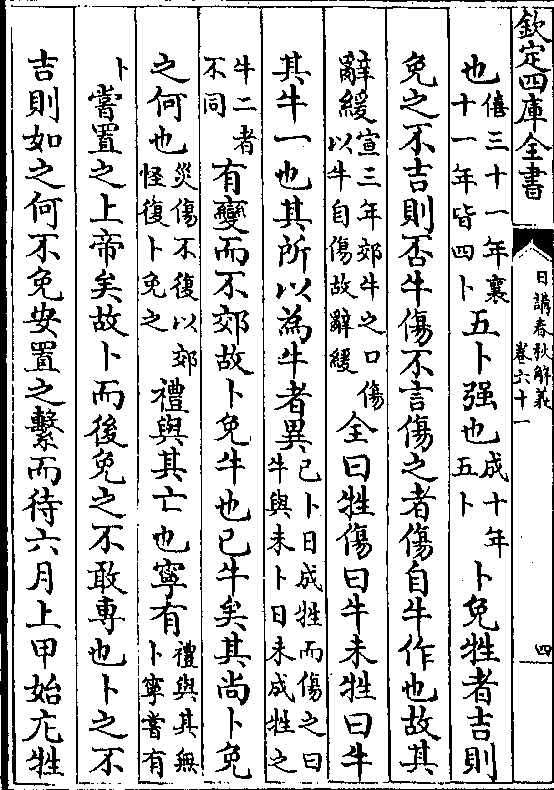 欽定四庫全書
日講春秋解義
卷六十一
四
也僖三十一年襄十一年皆四卜五卜强也成十年五卜卜免牲者吉則
免之不吉則否牛傷不言傷之者傷自牛作也故其
辭緩宣三年郊牛之口傷以牛自傷故辭緩全曰牲傷曰牛未牲曰牛
其牛一也其所以為牛者異已卜日成牲而傷之曰牛與未卜日未成牲之
牛二者不同有變而不郊故卜免牛也已牛矣其尚卜免
之何也災傷不復以郊怪復卜免之禮與其亡也寧有禮與其無卜寧嘗有
卜嘗置之上帝矣故卜而後免之不敢專也卜之不
吉則如之何不免安置之繫而待六月上甲始庀牲